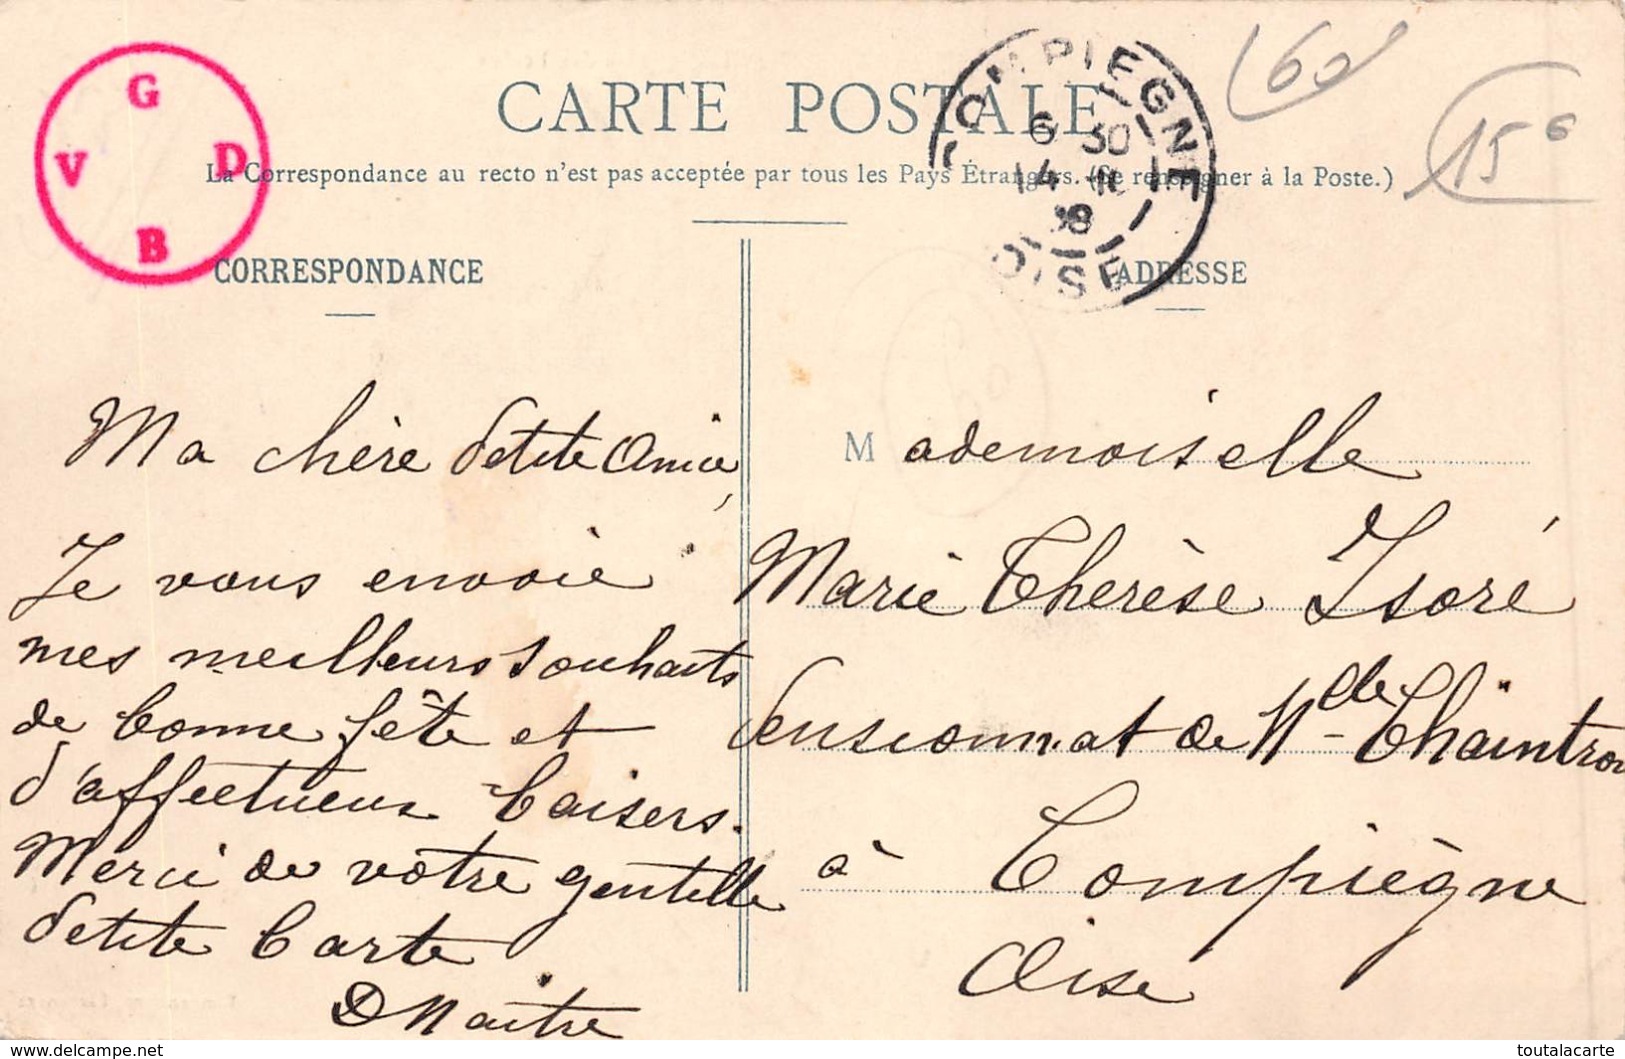 G
V D
B
CARTE POSTALE
La Correspondance au recto n'est pas acceptée par tous les Pays Étrangers. (Se renseigner à la Poste.)
COMPIEGNE
6 30
14
OISE
60
15
CORRESPONDANCE
Ma chère Petite Amie,
Je vous envoie
mes meilleurs souhaits
de bonne fête et
d'affectueux baisers.
Merci de votre gentille
Petite Carte
D Maitre
ADRESSE
Mademoiselle
Marie Thérèse Isoré
Pensionnat de Mdlle Chaintron
à Compiègne
Oise
toutalacarte
www.delcampe.net